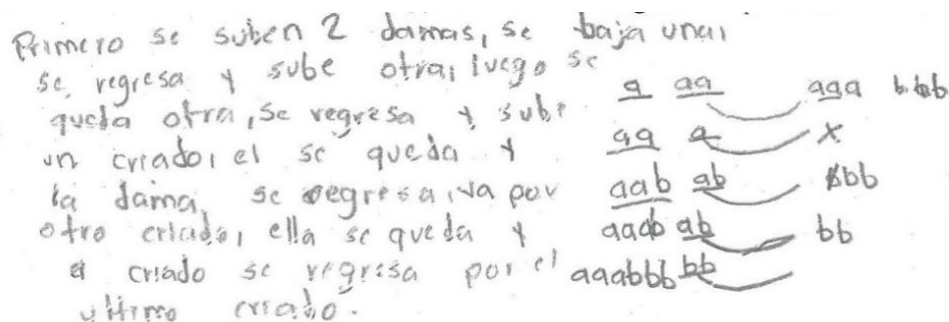 Primero se suben 2 damas, se baja una,
se regresa y sube otra, luego se
queda otra, se regresa y sube
un criado, el se queda y
la dama se regresa, va por
otro criado, ella se queda y
el criado se regresa por el
ultimo criado.
a aa aaa bbb
aa a x
aab ab bb
aaab ab bb
aaabbb bb